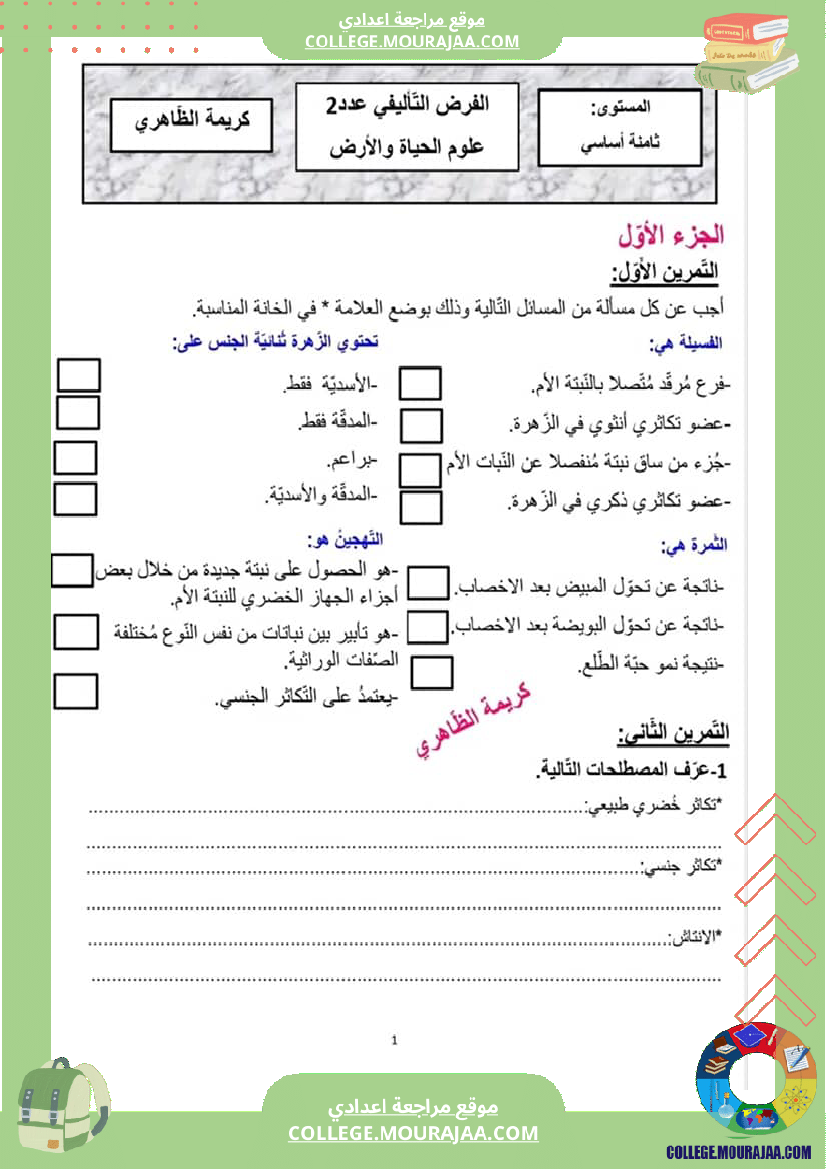 موقع مراجعة اعدادي
COLLEGE.MOURAJAA.COM
المستوى:
ثامنة أساسي
الفرض التّأليفي عدد2
علوم الحياة والأرض
كريمة الظّاهري
الجزء الأوّل
التّمرين الأوّل:
أجب عن كل مسألة من المسائل التّالية وذلك بوضع العلامة * في الخانة المناسبة.
الفسيلة هي:
-فرع مُرقّد مُتّصلا بالنّبتة الأم.
-عضو تكاثري أنثوي في الزّهرة.
-جُزء من ساق نبتة مُنفصلا عن النّبات الأم
-عضو تكاثري ذكري في الزّهرة.
تحتوي الزّهرة ثُنائيّة الجنس على:
-الأسديّة فقط.
-المدقّة فقط.
-براعم.
-المدقّة والأسديّة.
الثمرة هي:
-ناتجة عن تحوّل المبيض بعد الاخصاب.
-ناتجة عن تحوّل البويضة بعد الاخصاب.
-نتيجة نمو حبّة الطّلع.
التّهجينُ هو:
-هو الحصول على نبتة جديدة من خلال بعض
أجزاء الجهاز الخضري للنبتة الأم.
-هو تأبير بين نباتات من نفس النّوع مُختلفة
الصّفات الوراثية.
-يعتمدُ على التّكاثر الجنسي.
كريمة الظّاهري
التّمرين الثّاني:
1-عرّف المصطلحات التّالية.
*تكاثر خُضري طبيعي:..........................................................................
..........................................................................
*تكاثر جنسي:..........................................................................
..........................................................................
*الانتاش:..........................................................................
..........................................................................
1
موقع مراجعة اعدادي
COLLEGE.MOURAJAA.COM
COLLEGE.MOURAJAA.COM